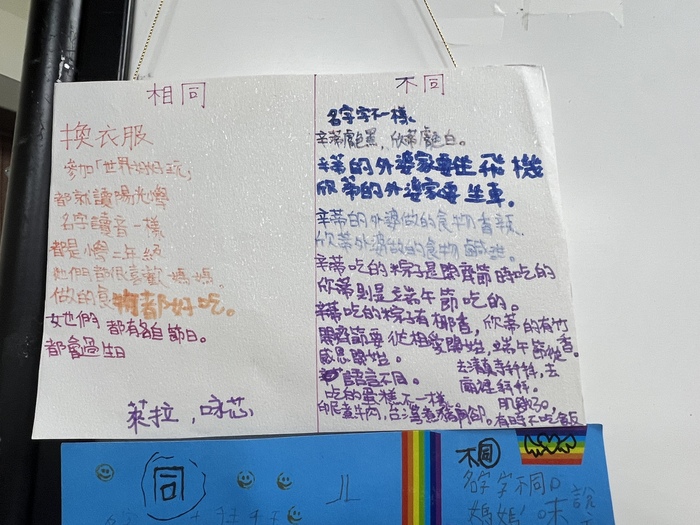 相同
換衣服
參加「世界好好玩」
都就讀陽光小學
名字讀音一樣
都是小學二年級
她們都很喜歡媽媽
做的食物都好吃。
她們都有各自節日。
都會過生日
萊拉,咏芯
不同
名字字不一樣、
辛蒂處黑,欣蒂處白。
辛蒂的外婆家要坐飛機
欣蒂的外婆家要坐車。
辛蒂的外婆做的食物香辣、
欣蒂外婆做的食物鹹
辛蒂吃的粽子是開齋節時吃的
欣蒂則是端午節吃的。
辛蒂吃的粽子有椰香,欣蒂的有竹香。
開齋節要從相愛開始,端午節從
感恩開始。
去清真寺拜拜,去
廟裡拜拜。
語言不同。
吃的蛋糕不一樣
印尼煮牛肉,台灣煮豬
有時不吃飯
同
不同
名字字不同
媽媽 味
說